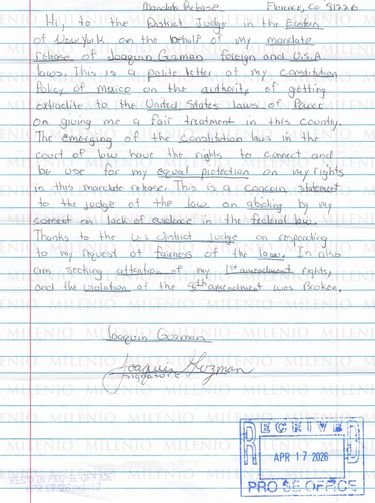 Mandate Release Florence, CO 81226
Hi, to the District Judge in the Eastern
of New York on the behalf of my mandate
release of Joaquin Guzman foreign and U.S.A
laws. This is a polite letter of my constitution
Policy of Mexico on the authority of getting
extradite to the United States laws of Power
on giving me a fair treatment in this country.
The emerging of the constitution laws in the
court of law have the rights to connect and
be use for my equal protection on my rights
in this mandate release. This is a concern statement
to the judge of the law on abiding by my
comment on lack of evidence in the federal law.
Thanks to the U.S district judge on responding
to my request of fairness of the laws. In also
am seeking attention of my 1st amendment rights,
and the violation of the 8th amendment was Broken.
Joaquin Guzman
Joaquin Guzman
signature
RECEIVED
APR 17 2026
PRO SE OFFICE
REC'D IN PRO SE OFFICE
MILENIO